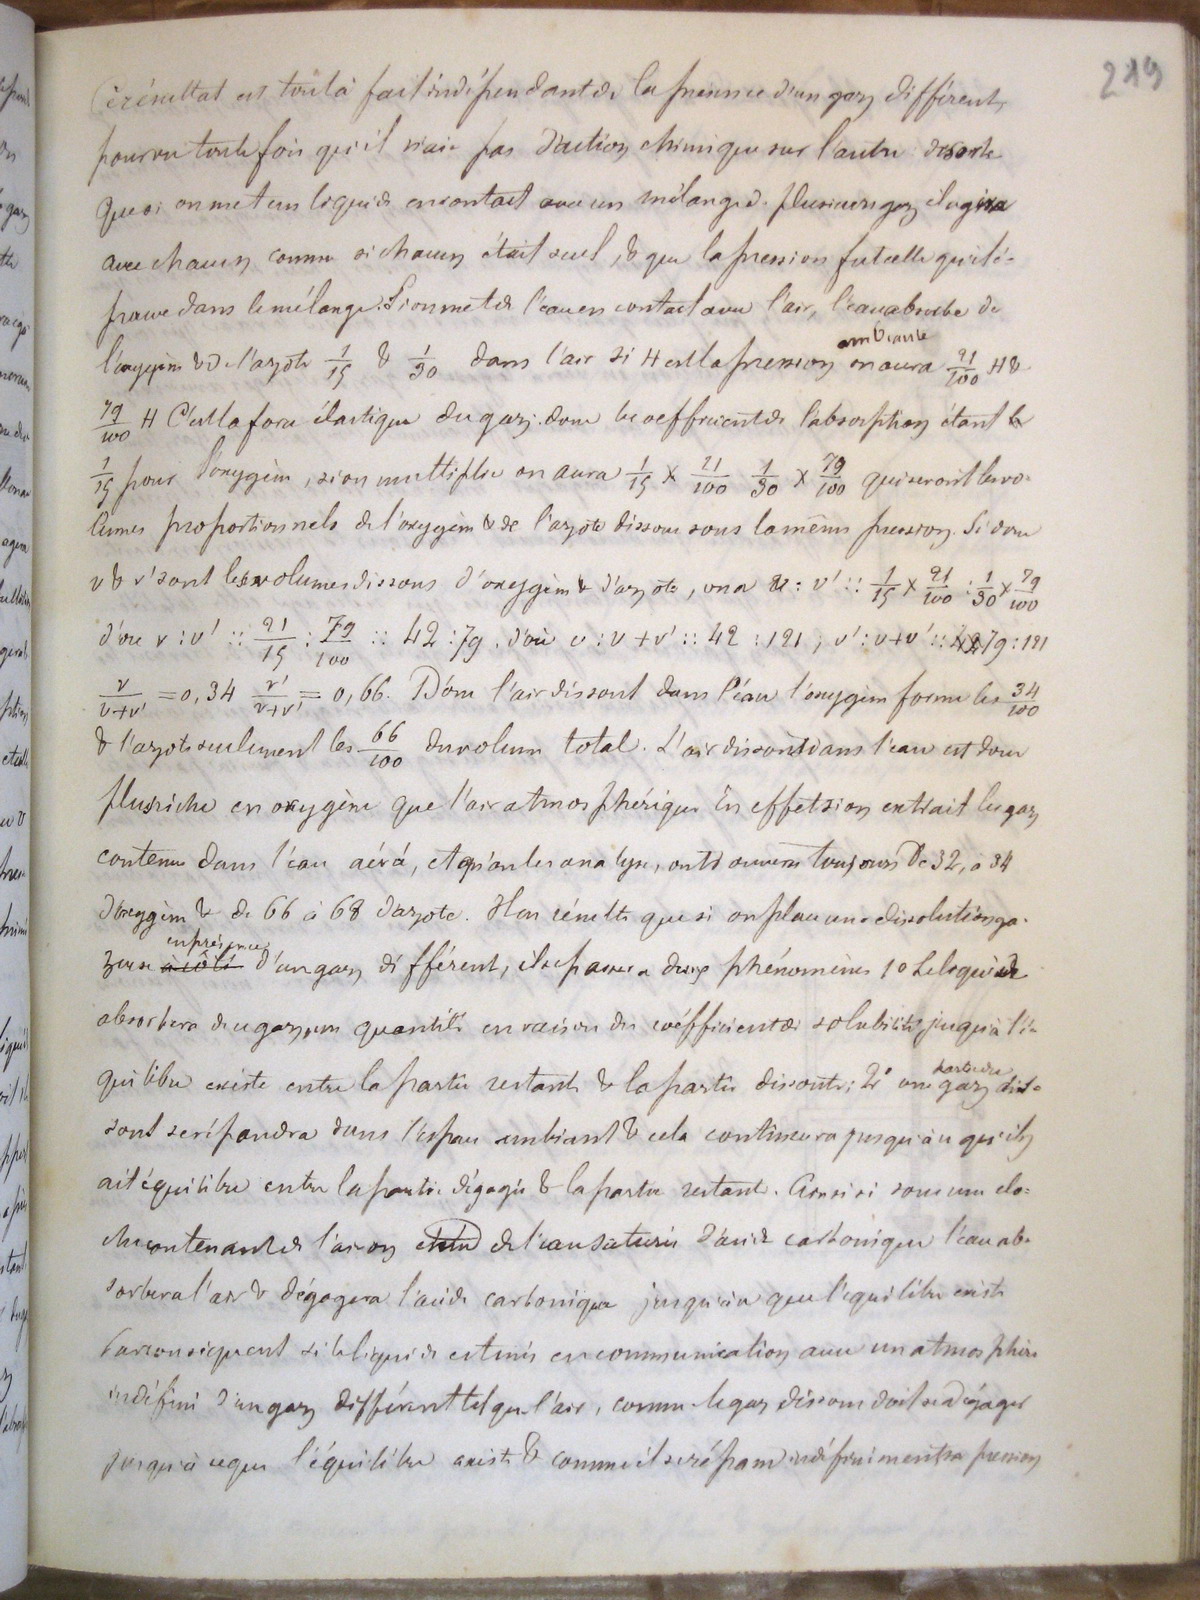 219
Ce résultat est tout à fait indépendant de la présence d'un gaz différent,
pourvu toute fois qu'il n'aie pas d'action chimique sur l'autre de sorte
que si on met un liquide en contact avec un mélange de plusieurs gaz il agira
avec chacun comme si chacun était seul, & que la pression fut celle qu'il é-
prouve dans le mélange. Si on met de l'eau en contact avec l'air, l'eau absorbe de
l'oxygène & de l'azote 1/15 & 1/30 dans l'air si H est la pression ambiante on aura 21/100 H &
79/100 H C'est la force élastique du gaz. donc le coefficient de l'absorption étant
1/15 pour l'oxygène, si on multiplie on aura 1/15 × 21/100 1/30 × 79/100 qui seront les vo-
lumes proportionnels de l'oxygène & de l'azote dissous sous la même pression. Si donc
v & v' sont les volumes dissous d'oxygène & d'azote, on a v : v' :: 1/15 × 21/100 : 1/30 × 79/100
d'où v : v' :: 21/15 : 79/100 :: 42 : 79. d'où v : v + v' :: 42 : 121 ; v' : v + v' :: 79 : 121
v/v+v' = 0,34 v'/v+v' = 0,66. Donc l'air dissout dans l'eau l'oxygène forme les 34/100
& l'azote seulement les 66/100 du volume total. L'air dissout dans l'eau est donc
plus riche en oxygène que l'air atmosphérique En effet si on extrait les gaz
contenus dans l'eau aéré, et qu'on les analyse, on trouvera toujours de 32, à 34
d'oxygène & de 66 à 68 d'azote. Il en résulte que si on place une dissolution ga-
zeuse à côté en présence d'un gaz différent, il se passera deux phénomènes 1o Le liquide
absorbera du gaz, une quantité en raison du coéfficient de solubilité jusqu'à l'é-
quilibre existe entre la partie restante & la partie dissoute ; 2o une partie du gaz dis-
sout se répandra dans l'espace ambiant & cela continuera jusqu'à ce qu'il y
ait équilibre entre la partie dégagée & la partie restant. Ainsi si sous une clo-
che contenant de l'air on de l'eau saturée d'acide carbonique l'eau ab-
sorbera l'air & dégagera l'acide carbonique jusqu'à ce que l'équilibre existe
Par conséquent si le liquide est mis en communication avec un atmosphère
indéfini d'un gaz différent tel que l'air, comme le gaz dissous doit se dégager
jusqu'à ce que l'équilibre existe & comme il se répand indéfiniment sa pression